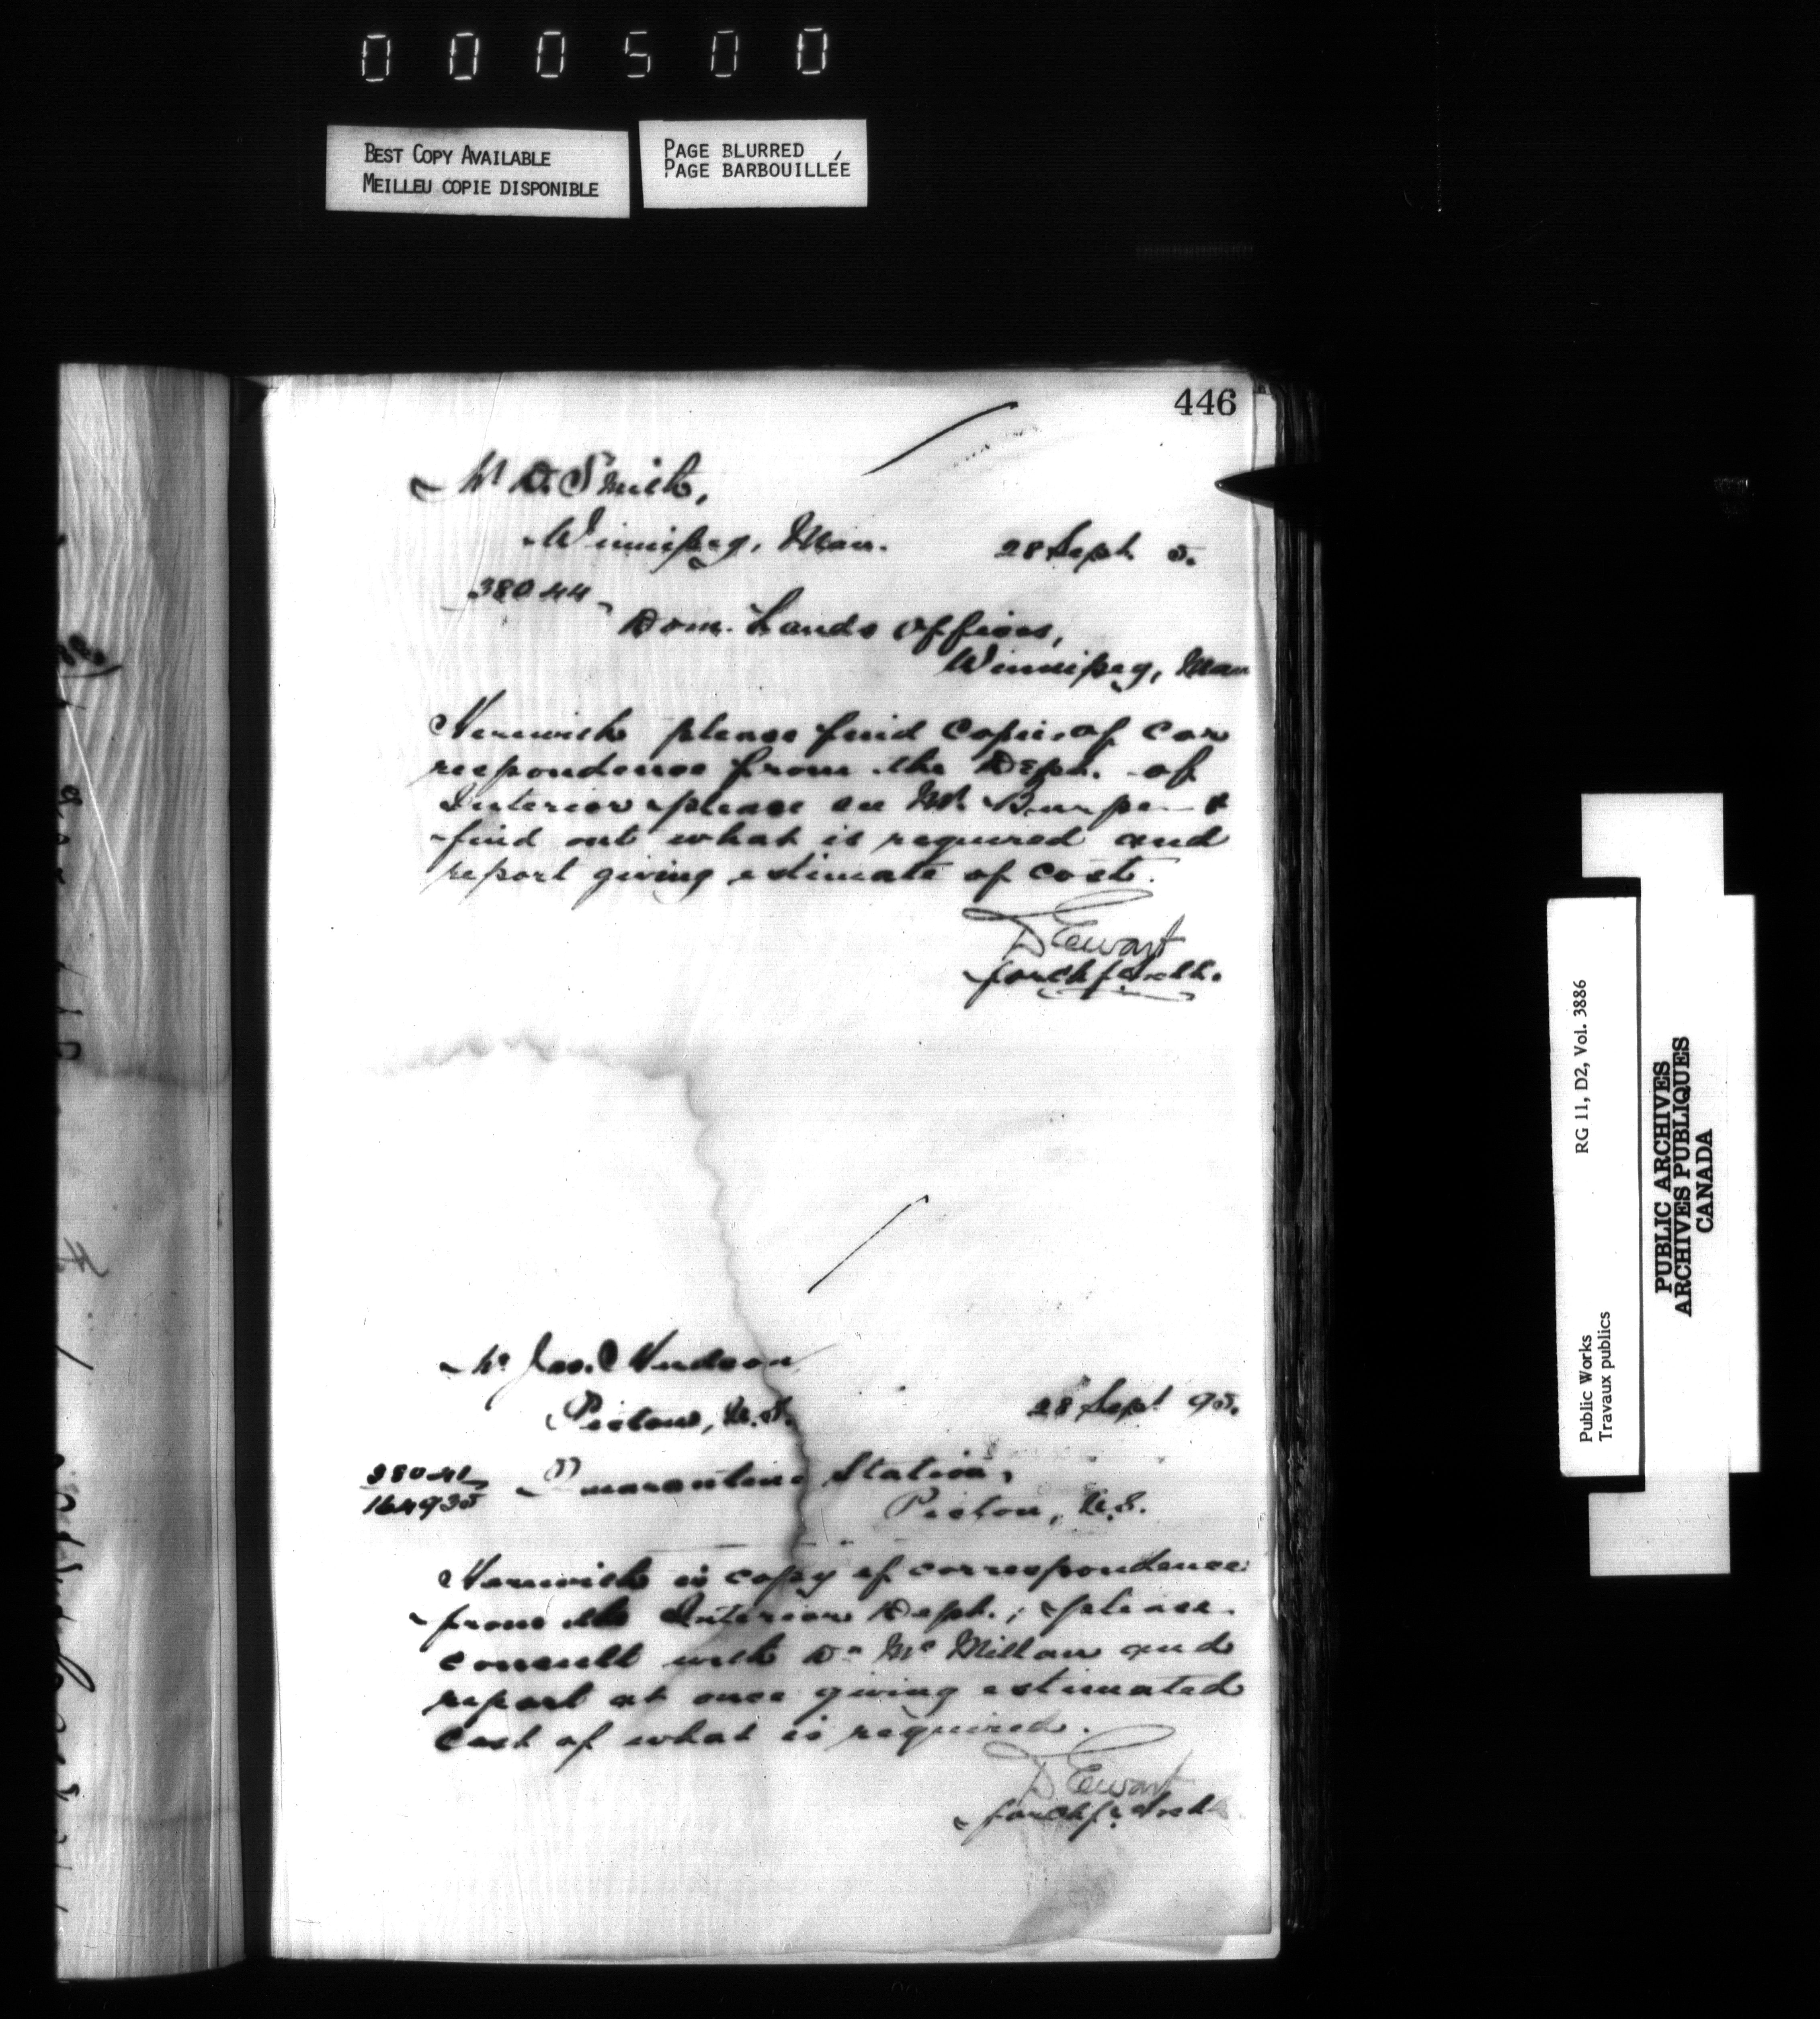 000500
BEST COPY AVAILABLE
MEILLEU COPIE DISPONIBLE
PAGE BLURRED
PAGE BARBOUILLÉE
446
Mr D. Smith,
Winnipeg, Man. 28 Sept 5.
38044
Dom. Lands Offices,
Winnipeg, Man
Herewith please find copies of cor
respondence from the Dept. of
Interior please see Mr. Burpee &
find out what is required and
report giving estimate of cost.
D Ewart
for Chf. Archt.
Mr Jas. C Hudson
Pictou, N.S. 28 Sept 95.
38041
164935
Quarantine Station,
Pictou, N.S.
Herewith is copy of correspondence
from the Interior Dept.; please
consult with Dr McMillan and
report at once giving estimated
cost of what is required.
D Ewart
for Chf. Archt
Public Works
Travaux publics
RG 11, D2, Vol. 3886
PUBLIC ARCHIVES
ARCHIVES PUBLIQUES
CANADA